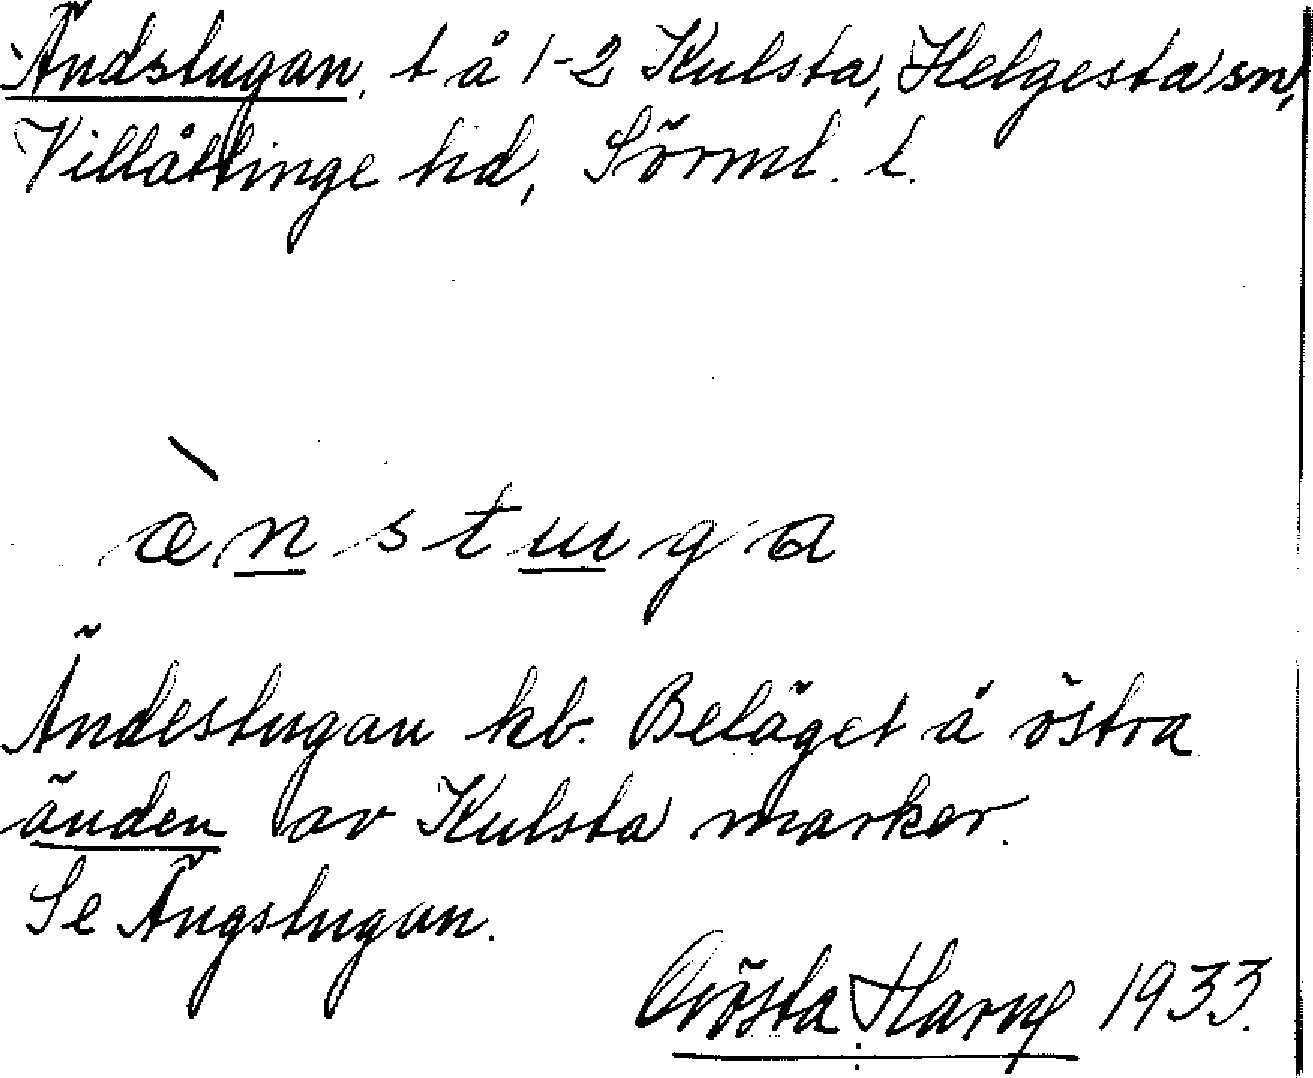 Ändstugan, t å 1-2 Kulsta, Helgesta sn,
Villåttinge hd, Sörml. l.
ǽnstuga
Ändestugan kb. Beläget å östra
änden av Kulsta marker.
Se Ängstugan.
Gösta Harry 1933.